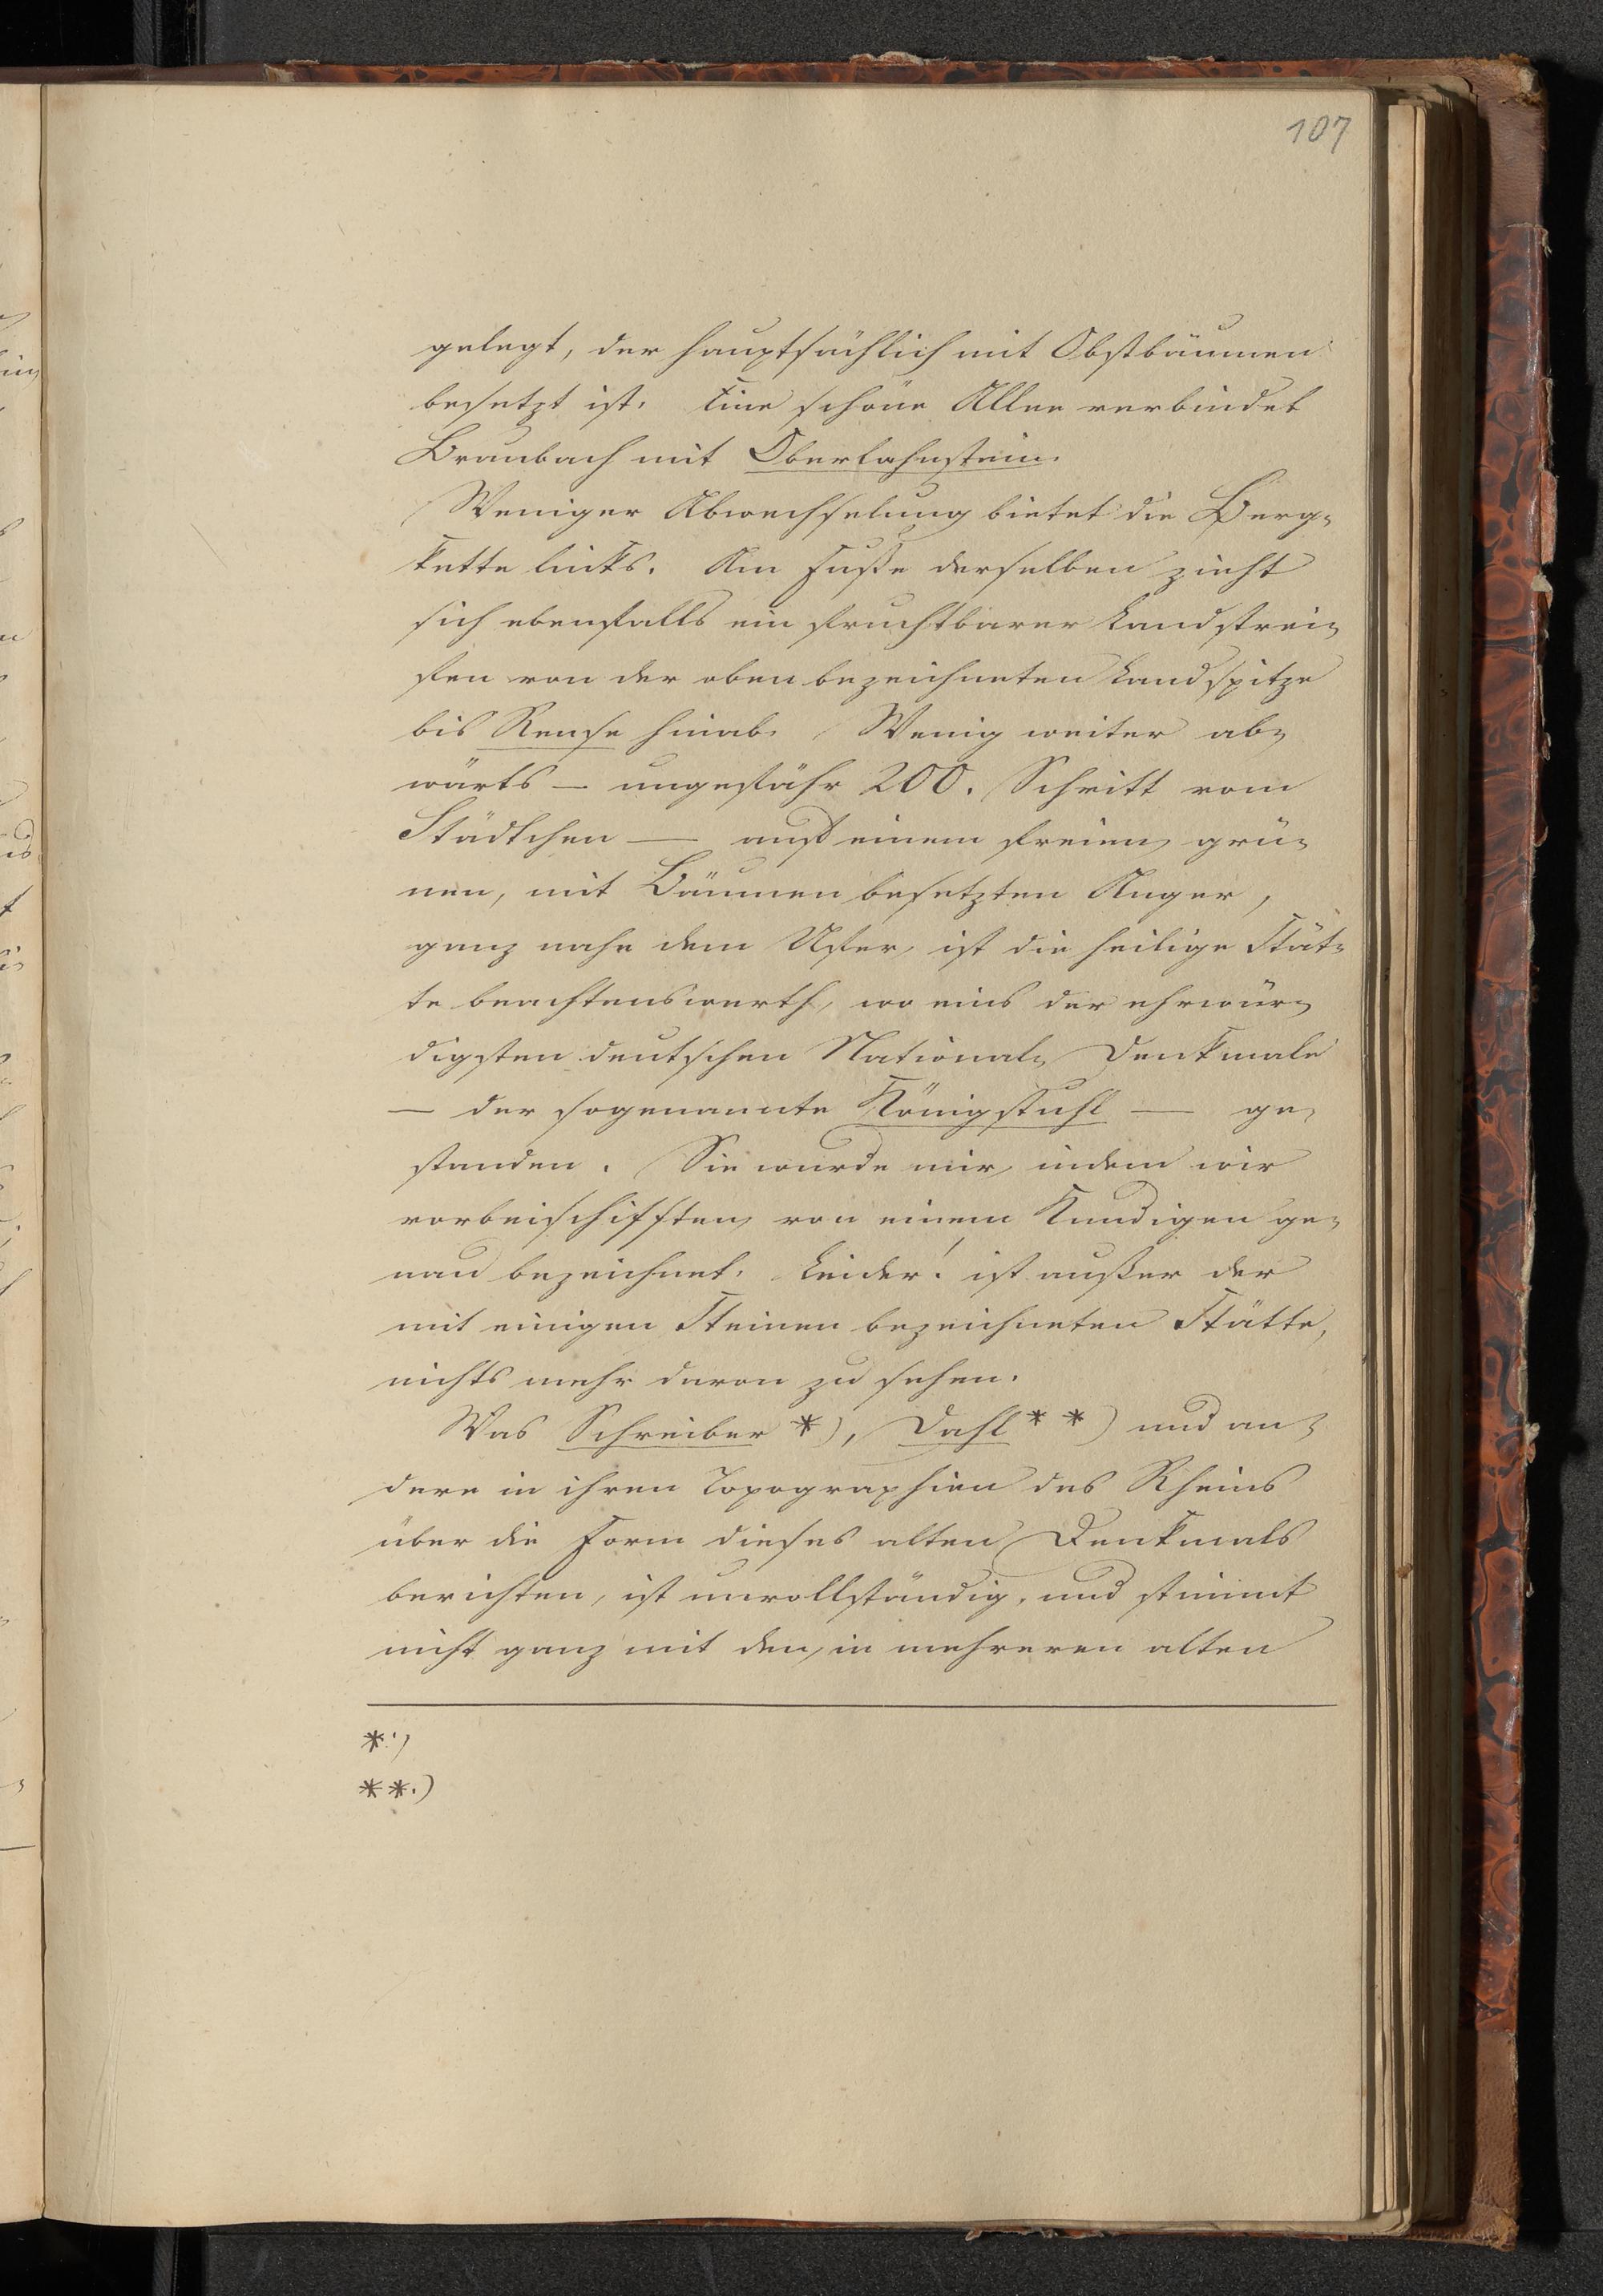 107
gelegt, der hauptsächlich mit Obstbäumen
besetzt ist. Eine schöne Allee verbindet
Braubach mit Oberlahnstein.
Weniger Abwechselung bietet die Berg-
kette links. Am Fuße derselben zieht
sich ebenfalls ein fruchtbarer Landstrei-
fen von der oben bezeichneten Landspitze
bis Rense hinab. Wenig weiter ab-
wärts — ungefähr 200. Schritt vom
Städtchen — auf einem freien, grü-
nen, mit Bäumen besetzten Anger,
ganz nahe dem Ufer, ist die heilige Stät-
te beachtenswerth, wo eins der ehrwür-
digsten deutschen National-Denkmale
— der sogenannte Königstuhl — ge-
standen. Sie wurde mir, indem wir
vorbeischifften, von einem Kundigen ge-
nau bezeichnet. Leider! ist außer der
mit einigen Steinen bezeichneten Stätte,
nichts mehr davon zu sehen.
Was Schreiber *), Dahl **) und an-
dere in ihren Topographien des Rheins
über die Form dieses alten Denkmals
berichten, ist unvollständig, und stimmt
nicht ganz mit den, in mehreren alten
*.)
**.)